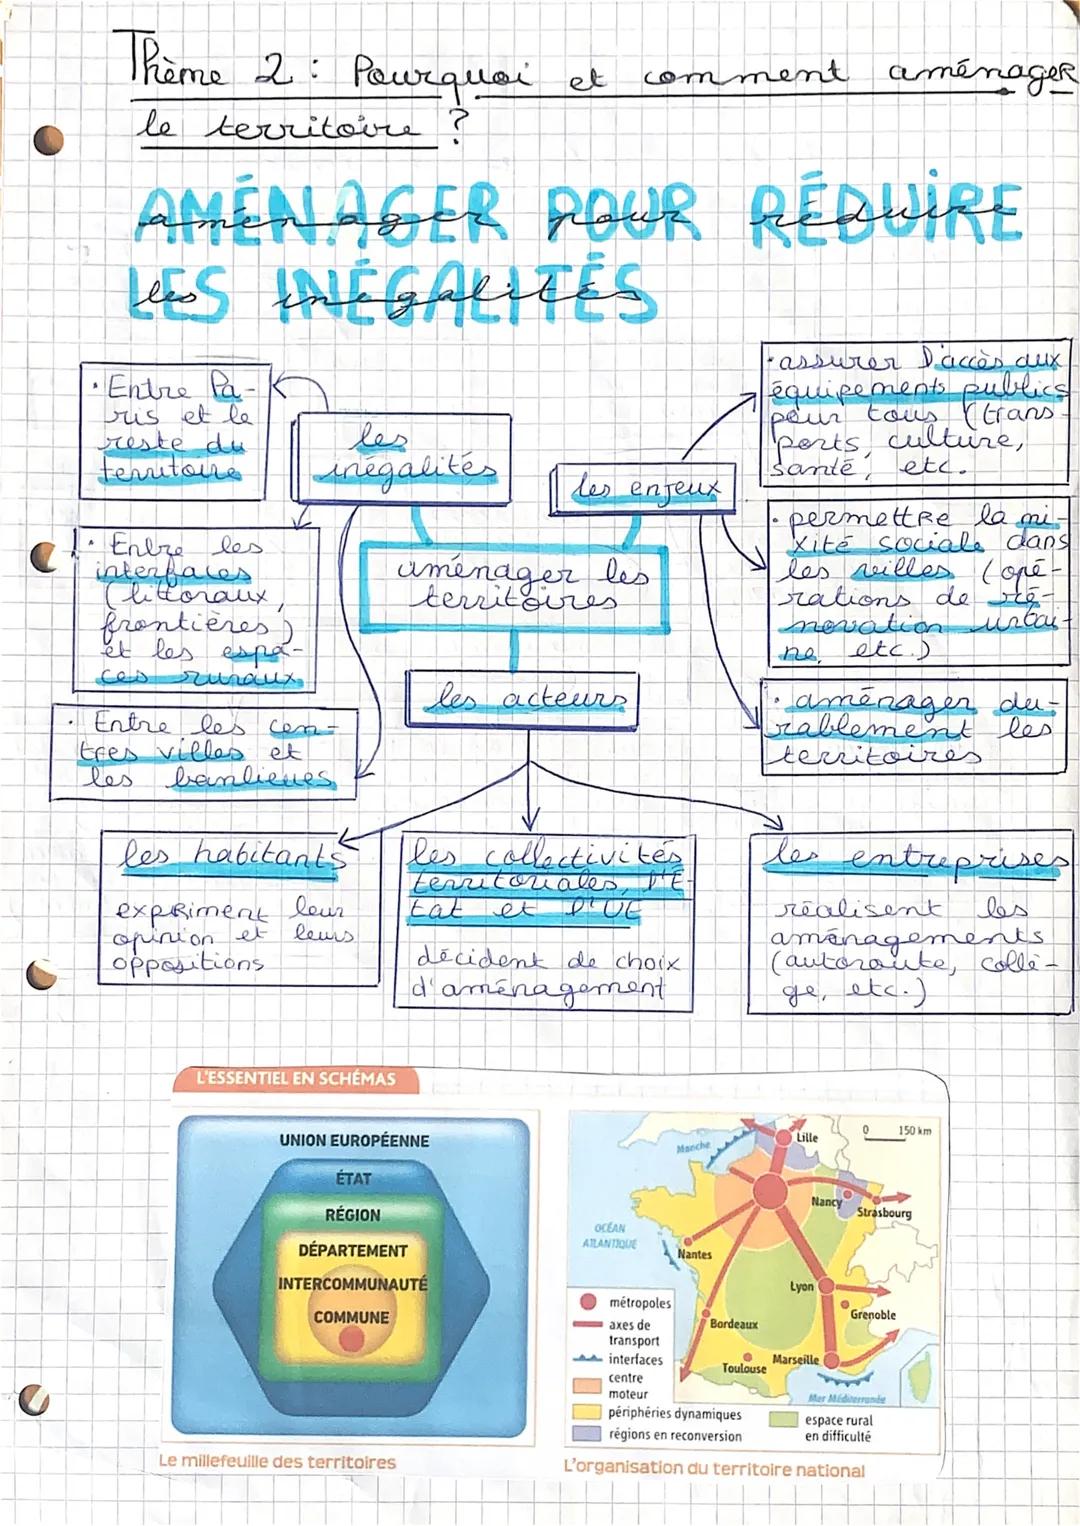 Thème 2 : Pourquoi et comment aménager
le territoire ?
AMÉNAGER POUR RÉDUIRE
aménager pour réduire
LES INÉGALITÉS
les inégalités
· Entre Pa-
ris et le
reste du
territoire
les
inégalités
· Entre les
interfaces
(littoraux,
frontières)
et les espa-
ces ruraux
· Entre les cen-
tres villes et
les banlieues
les enjeux
· assurer l'accès aux
équipements publics
pour tous (trans-
ports, culture,
santé, etc.
· permettre la mi-
xité sociale dans
les villes (opé-
rations de ré-
novation urbai-
ne, etc.)
· aménager du-
rablement les
territoires
aménager les
territoires
les acteurs
les habitants
expriment leur
opinion et leurs
oppositions
les collectivités
territoriales, l'É-
tat et l'UE
décident de choix
d'aménagement
les entreprises
réalisent les
aménagements
(autoroute, collè-
ge, etc.)
L'ESSENTIEL EN SCHÉMAS
UNION EUROPÉENNE
ÉTAT
RÉGION
DÉPARTEMENT
INTERCOMMUNAUTÉ
COMMUNE
Le millefeuille des territoires
Manche
Lille
0 150 km
Nancy
Strasbourg
OCÉAN
ATLANTIQUE
Nantes
Lyon
Grenoble
Bordeaux
Toulouse
Marseille
Mer Méditerranée
métropoles
axes de
transport
interfaces
centre
moteur
périphéries dynamiques
régions en reconversion
espace rural
en difficulté
L'organisation du territoire national